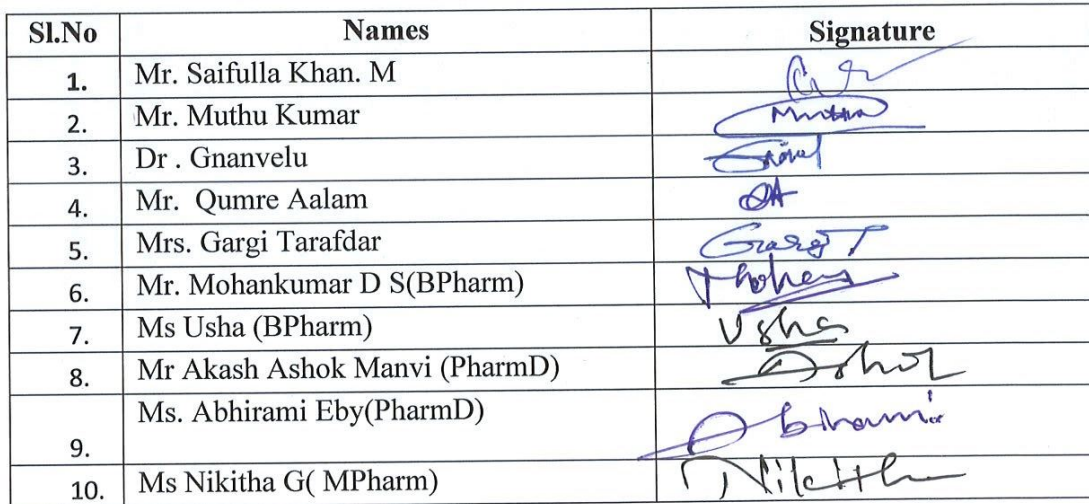 Sl.No Names Signature
1. Mr. Saifulla Khan. M
2. Mr. Muthu Kumar Muthu
3. Dr . Gnanvelu
4. Mr. Qumre Aalam QA
5. Mrs. Gargi Tarafdar Gargi T
6. Mr. Mohankumar D S(BPharm) Mohan
7. Ms Usha (BPharm) Usha
8. Mr Akash Ashok Manvi (PharmD) Ashok
9. Ms. Abhirami Eby(PharmD) Abhirami
10. Ms Nikitha G( MPharm) Nikitha